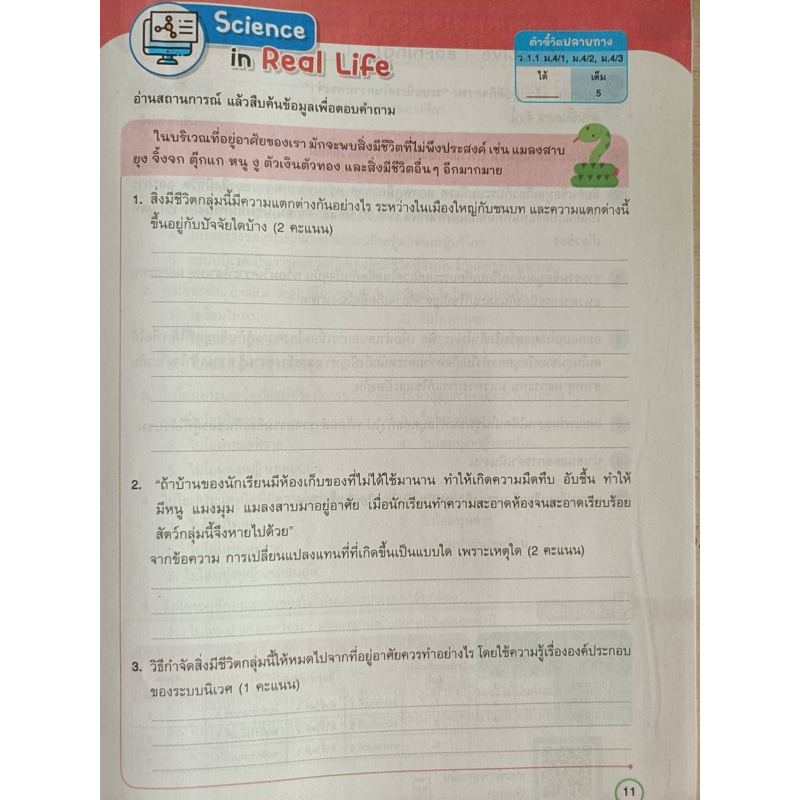 Science
in Real Life
ตัวชี้วัดปลายทาง
ว 1.1 ม.4/1, ม.4/2, ม.4/3
ได้ เต็ม
5
อ่านสถานการณ์ แล้วสืบค้นข้อมูลเพื่อตอบคำถาม
ในบริเวณที่อยู่อาศัยของเรา มักจะพบสิ่งมีชีวิตที่ไม่พึงประสงค์ เช่น แมลงสาบ
ยุง จิ้งจก ตุ๊กแก หนู งู ตัวเงินตัวทอง และสิ่งมีชีวิตอื่นๆ อีกมากมาย
1. สิ่งมีชีวิตกลุ่มนี้มีความแตกต่างกันอย่างไร ระหว่างในเมืองใหญ่กับชนบท และความแตกต่างนี้
ขึ้นอยู่กับปัจจัยใดบ้าง (2 คะแนน)
2. “ถ้าบ้านของนักเรียนมีห้องเก็บของที่ไม่ได้ใช้มานาน ทำให้เกิดความมืดทึบ อับชื้น ทำให้
มีหนู แมงมุม แมลงสาบมาอยู่อาศัย เมื่อนักเรียนทำความสะอาดห้องจนสะอาดเรียบร้อย
สัตว์กลุ่มนี้จึงหายไปด้วย”
จากข้อความ การเปลี่ยนแปลงแทนที่ที่เกิดขึ้นเป็นแบบใด เพราะเหตุใด (2 คะแนน)
3. วิธีกำจัดสิ่งมีชีวิตกลุ่มนี้ให้หมดไปจากที่อยู่อาศัยควรทำอย่างไร โดยใช้ความรู้เรื่ององค์ประกอบ
ของระบบนิเวศ (1 คะแนน)
11